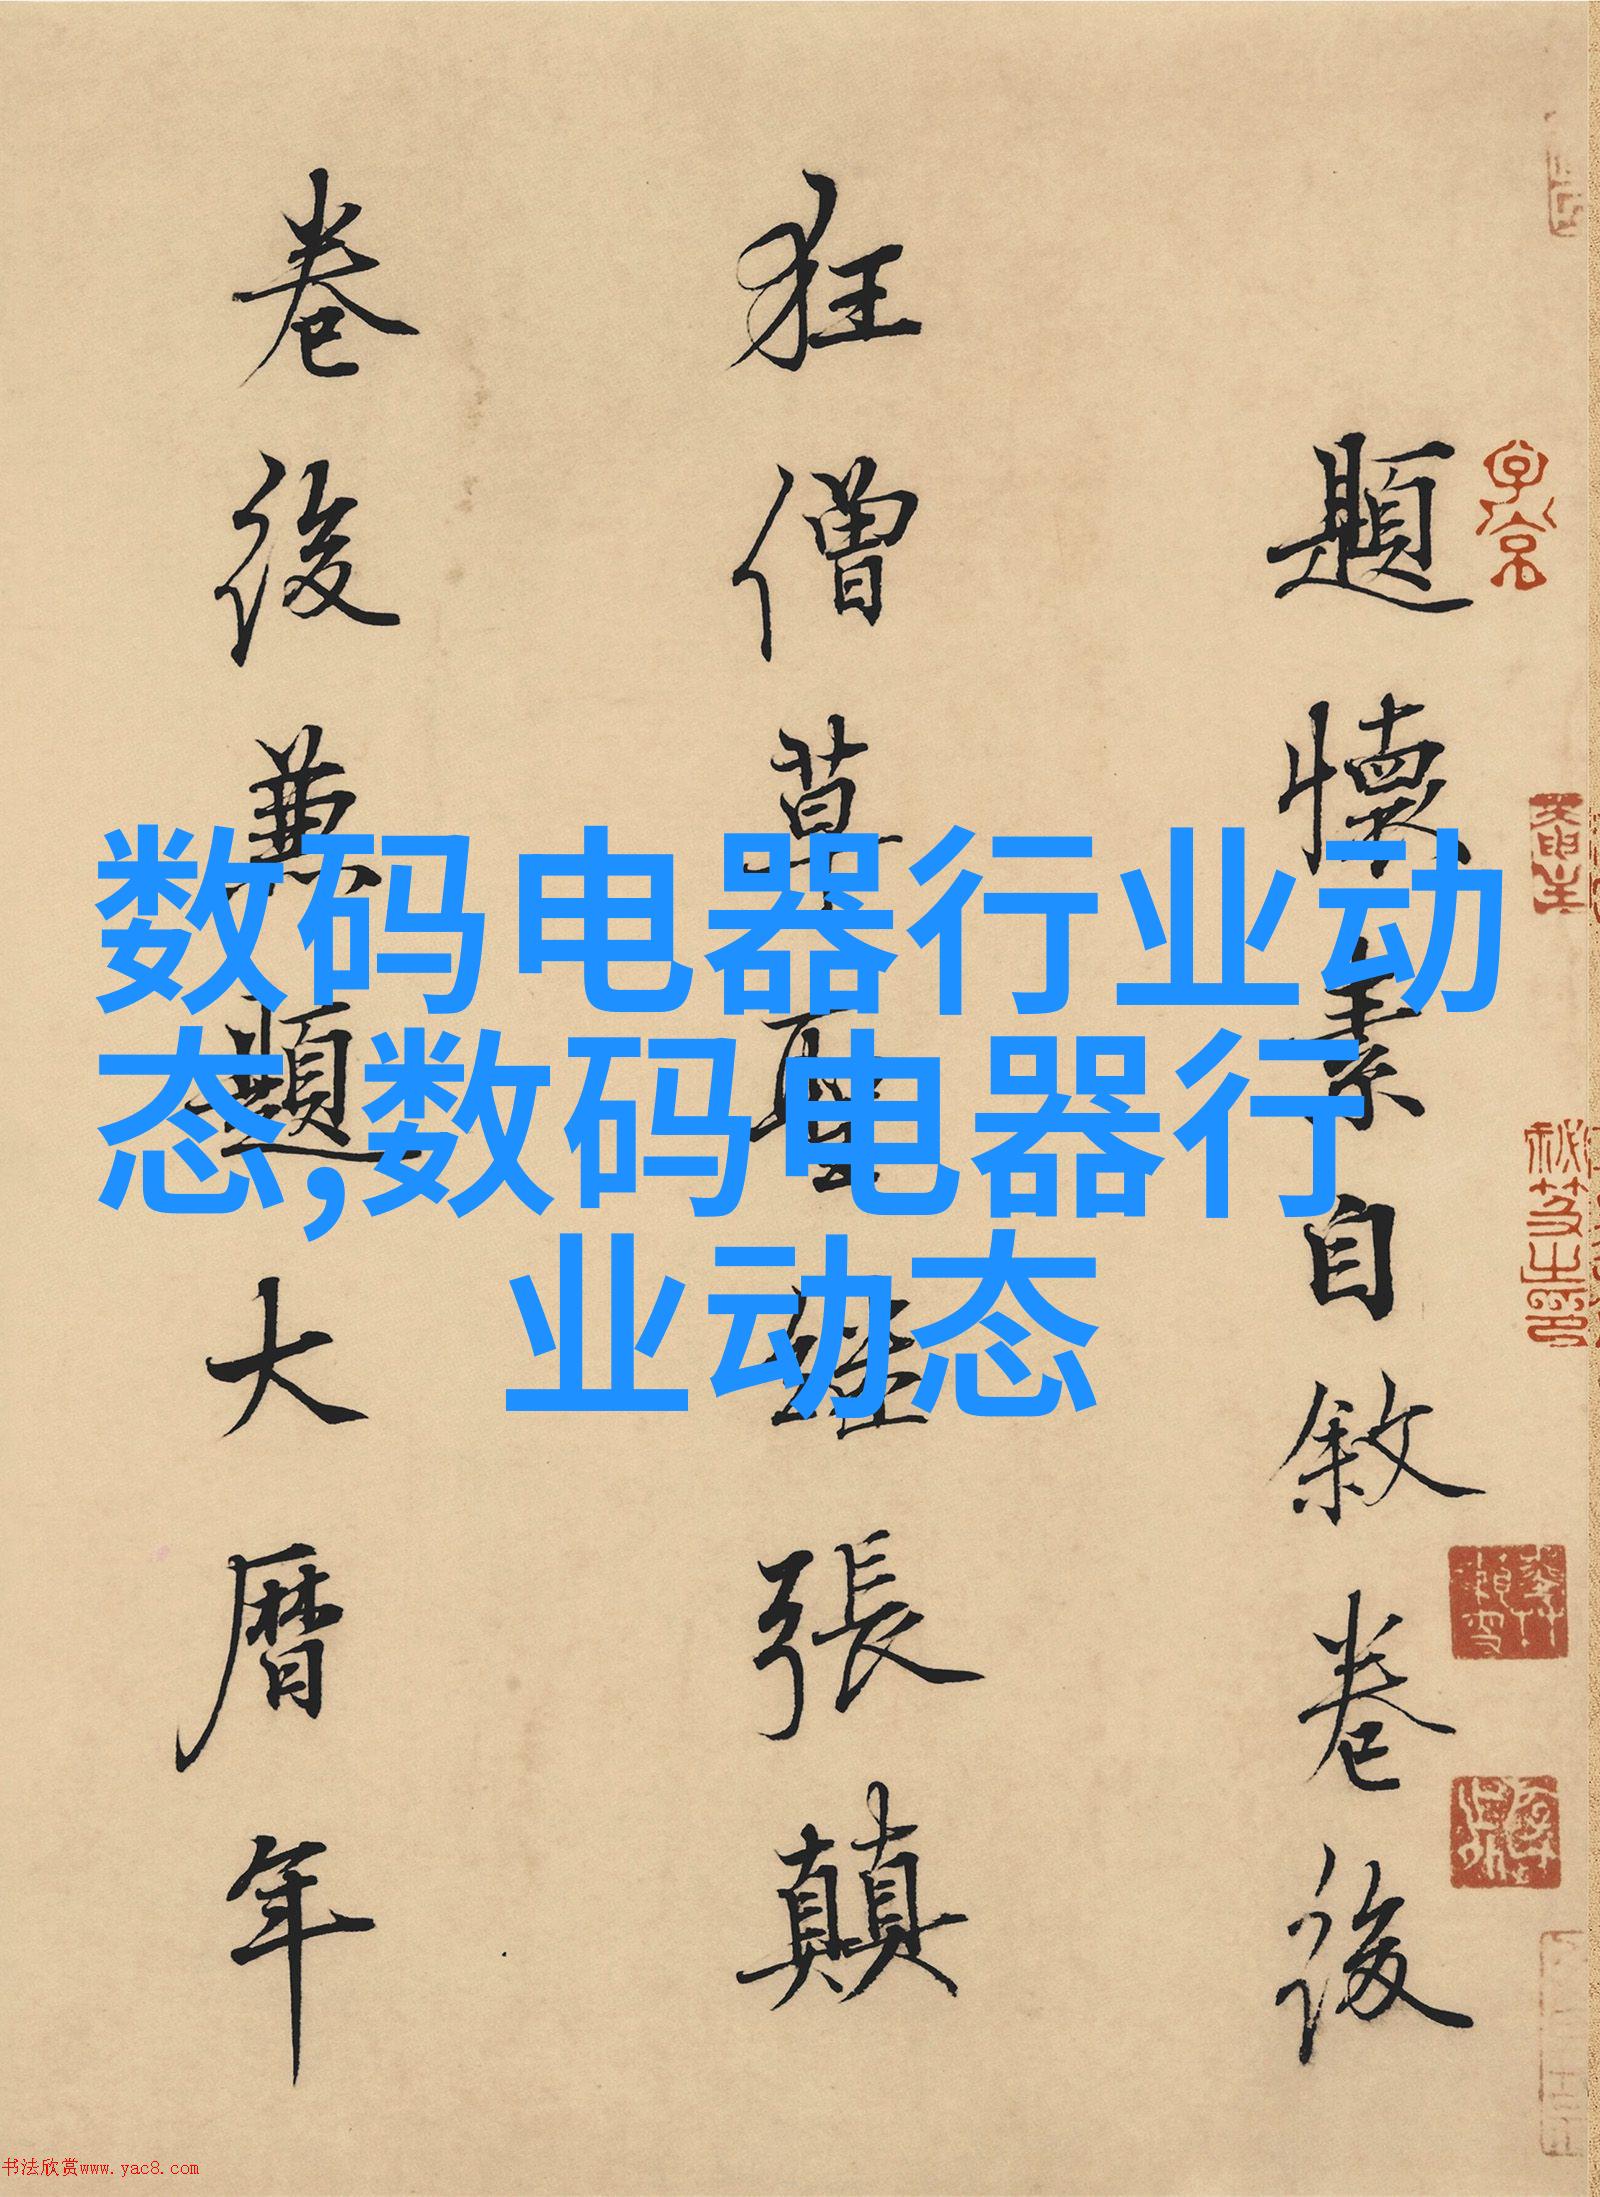 題懷素自敘卷後
狂僧草聖繼張顛
卷後兼題大曆年
数码电器行业动
态,数码电器行
业动态
书法欣赏www.yac8.com